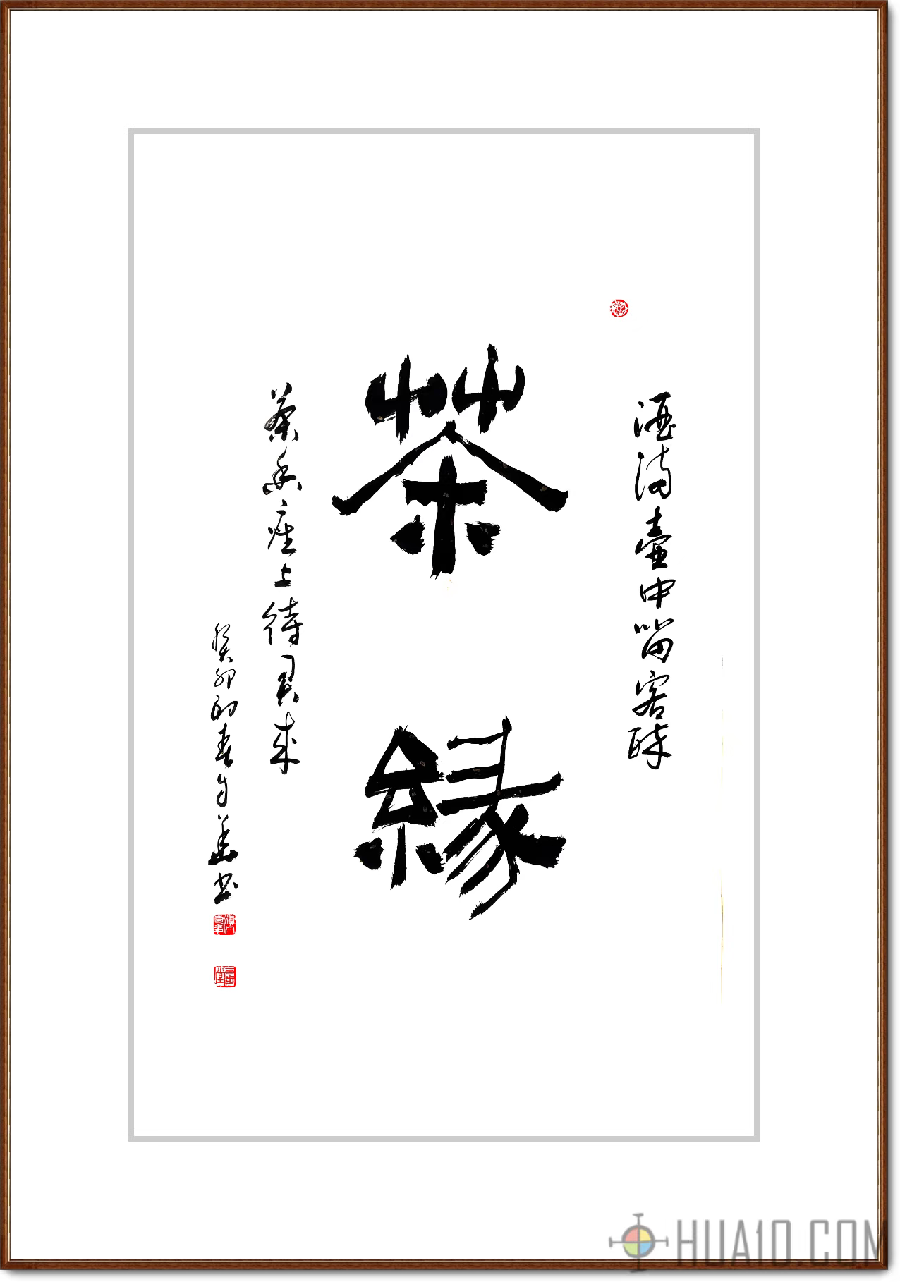 酒满壶中留客醉
茶緣
茶香座上待君来
癸卯初春
HUA10.COM